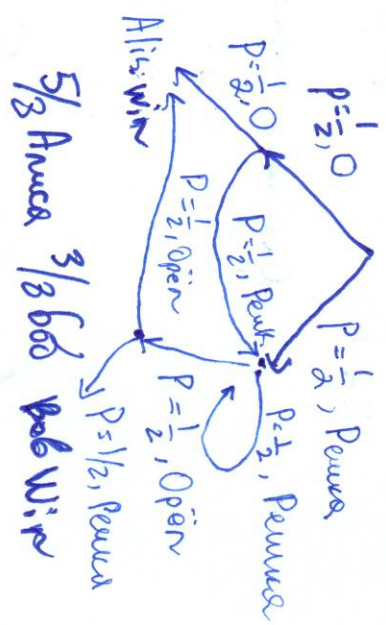 P=1/2, O
P=1/2, Решка
P=1/2, O
P=1/2, Реш.
P=1/2, Решка
P=1/2, Орёл
P=1/2, Орёл
Alis: Win
P=1/2, Решка
Bob Win
5/8 Алиса 3/8 Боб